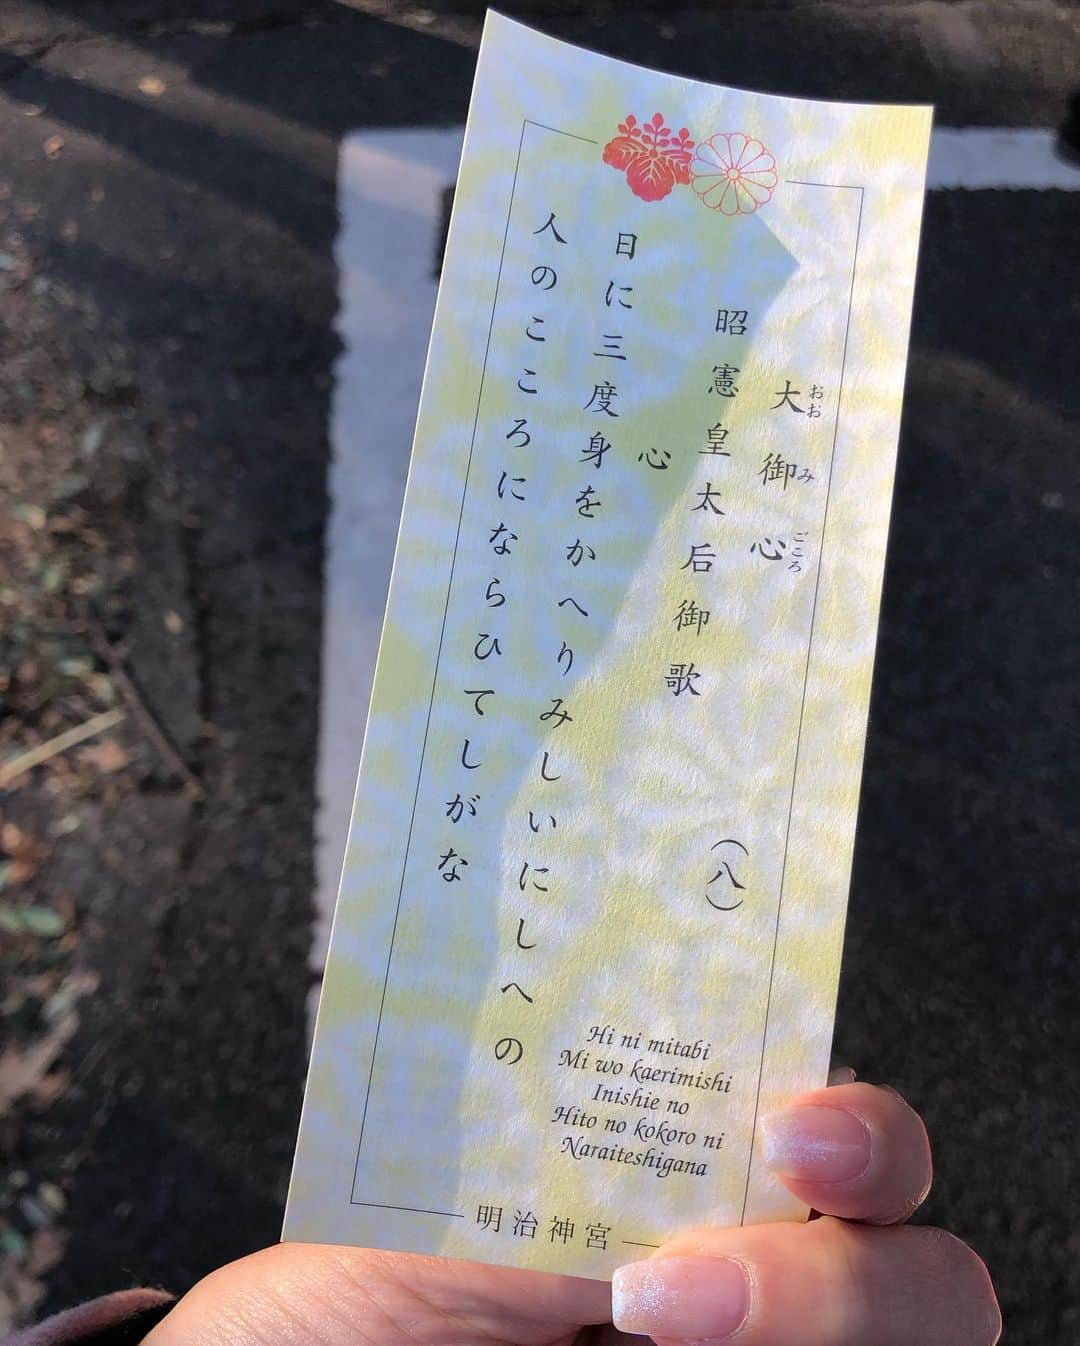 大御心
おおみごころ
昭憲皇太后御歌
（八）
心
日に三度身をかへりみしいにしへの
人のこころにならひてしがな
Hi ni mitabi
Mi wo kaerimishi
Inishie no
Hito no kokoro ni
Naraiteshigana
明治神宮